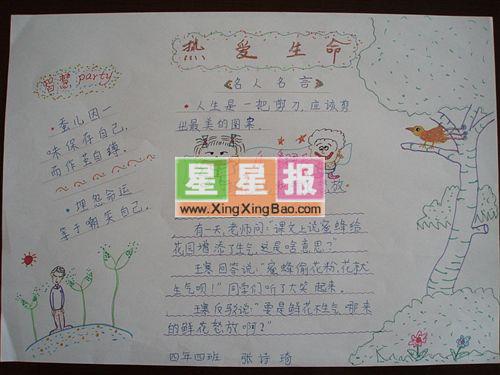 热爱生命
智慧party
《名人名言》
·人生是一把剪刀,应该剪
出最美的图案.
·蚕儿因一
味保存自己,
而作茧自缚.
·埋怨命运
等于嘲笑自己.
星星报
www.XingXingBao.com
放
有一天,老师问:"课文上说蜜蜂给
花园增添了生气,这是啥意思?"
王回答说:"蜜蜂偷花粉,花就
生气呗!"同学们听了大笑起来.
王反驳说:"要是鲜花不生气 哪来
的鲜花怒放啊?"
四年四班 张诗琦